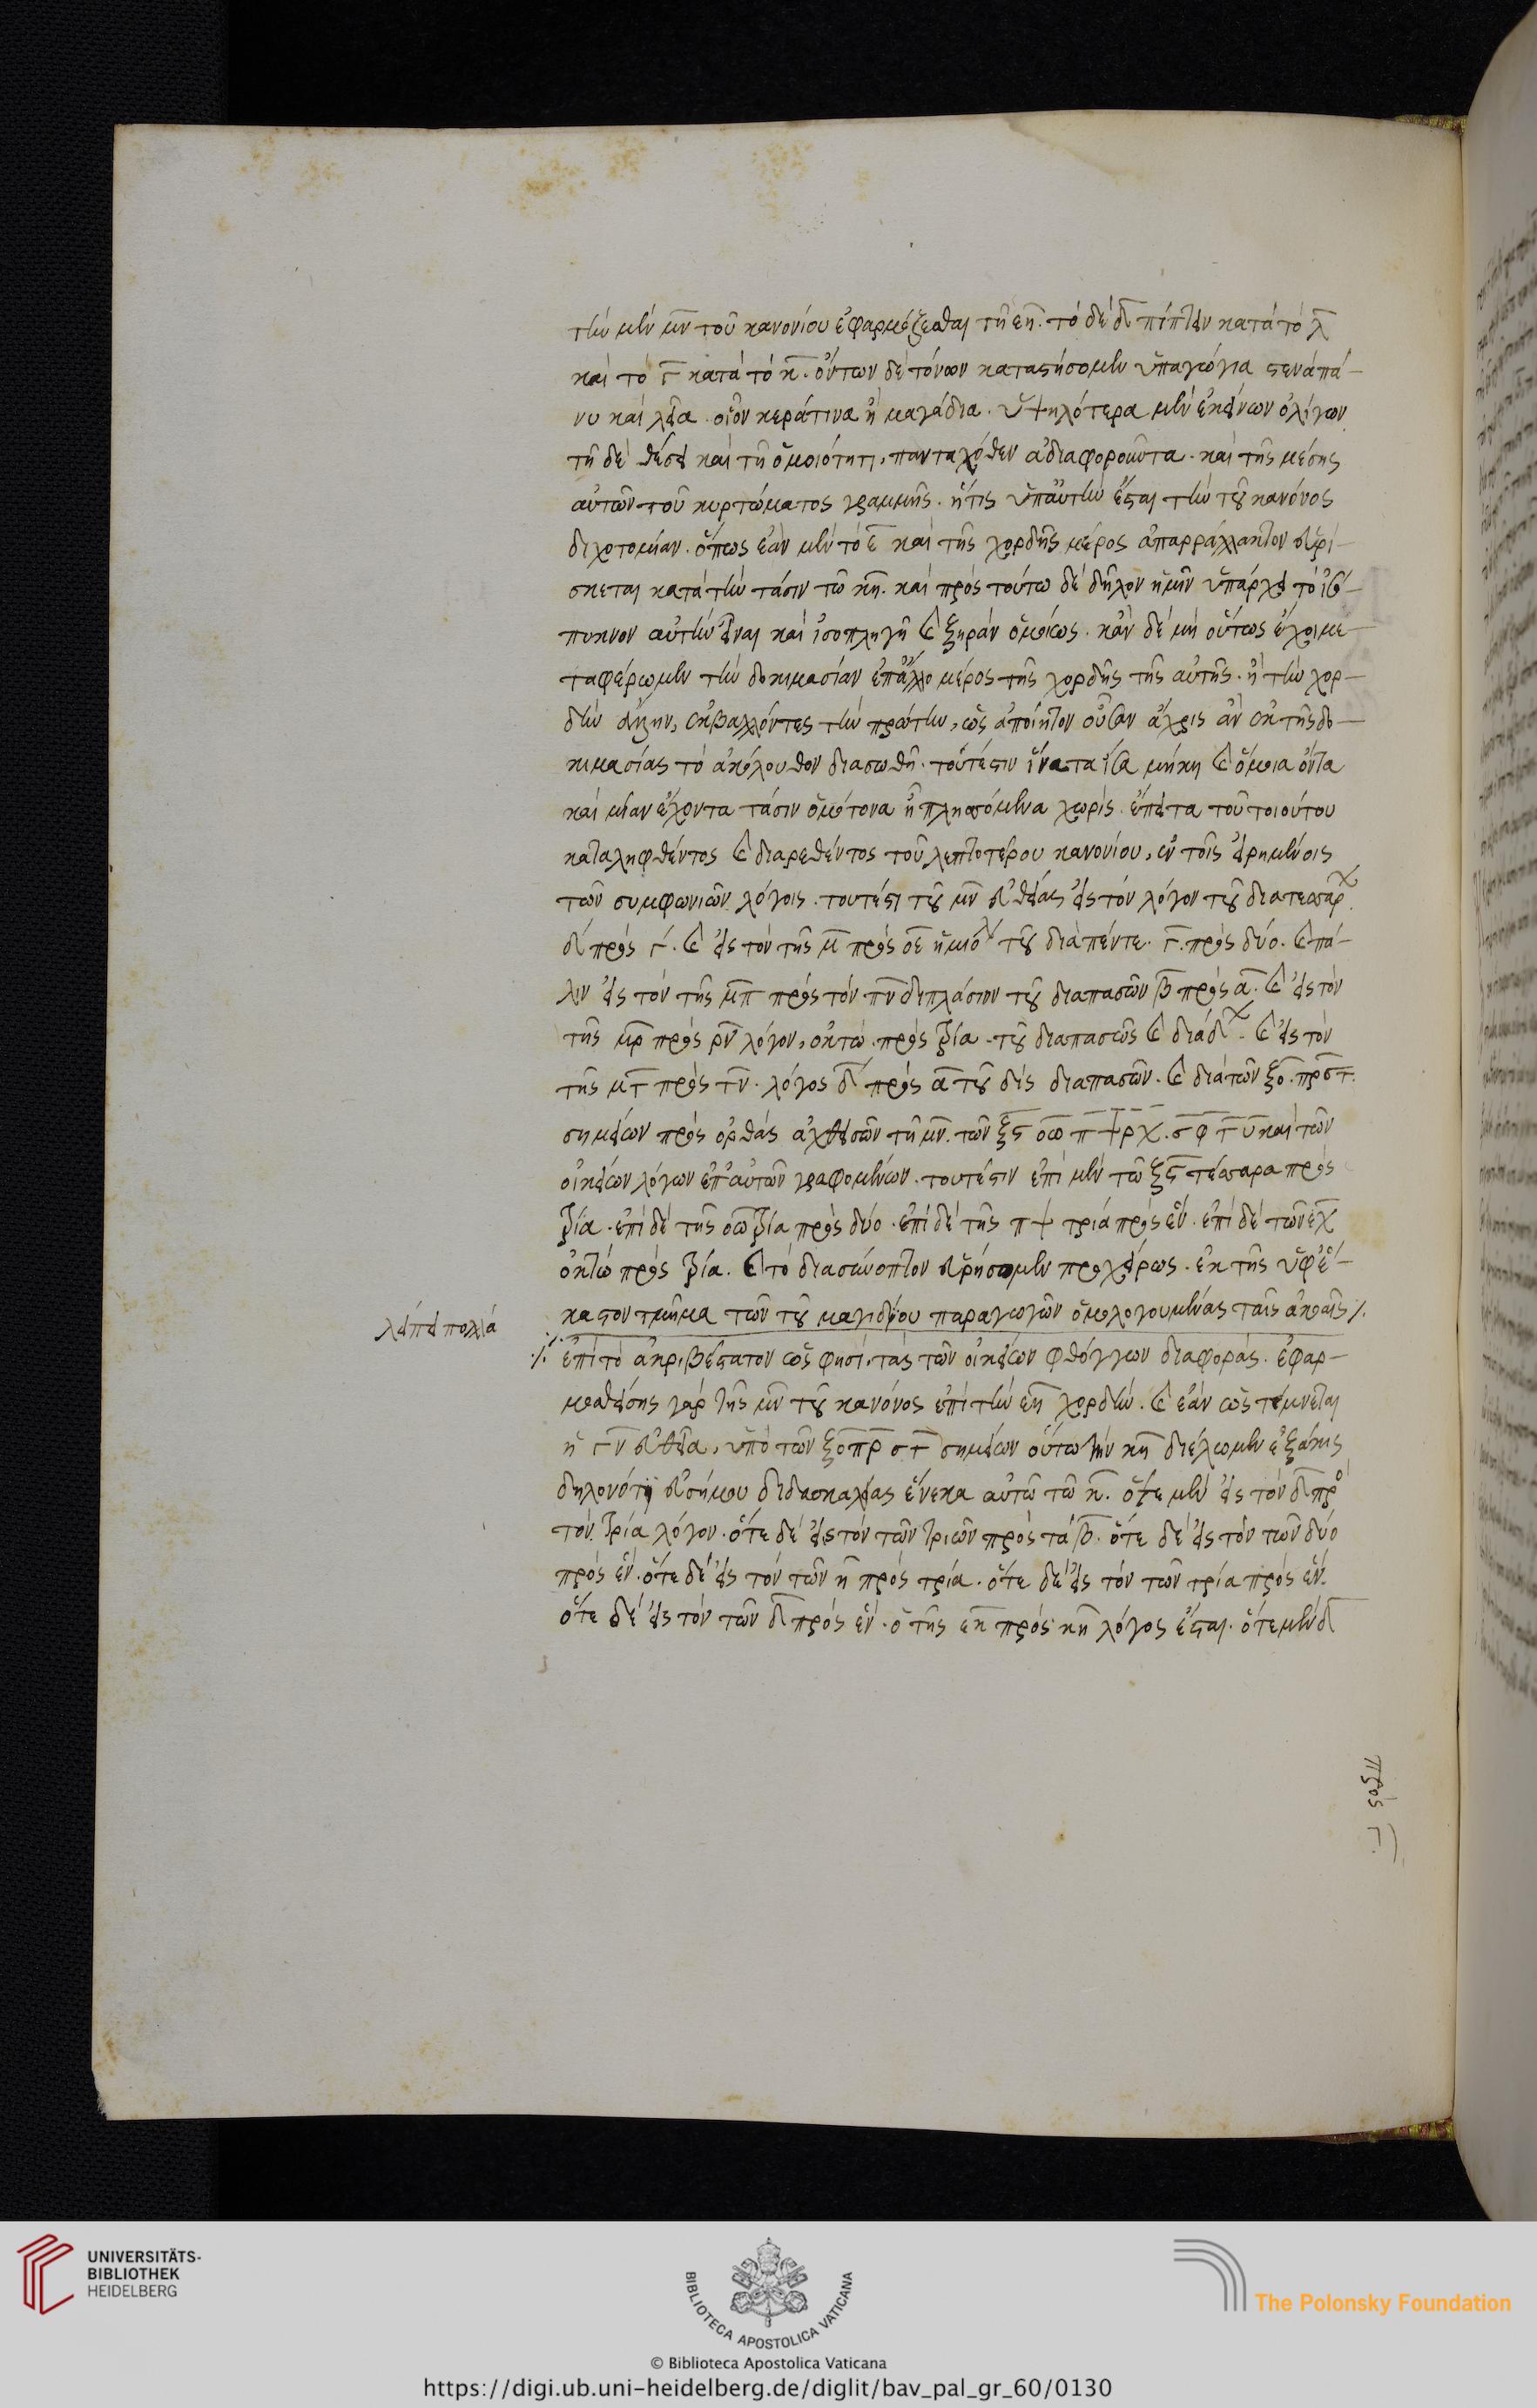 τὴν μὲν μν τοῦ κανονίου ἐφαρμόζεσθαι τῇ εη. τὸ δὲ δ πίπτειν κατὰ τὸ λ
καὶ τὸ γ κατὰ τὸ κ. ὄντων δὲ τόνων καταστήσομεν ὑπαγώγια στενὰ πά-
νυ καὶ λεῖα. οἷον κεράτινα ἢ μαγάδια. ὑψηλότερα μὲν ἐκείνων ὀλίγων
τῇ δὲ θέσει καὶ τῇ ὁμοιότητι, πανταχόθεν ἀδιαφοροῦντα. καὶ τῆς μέσης
αὐτῶν τοῦ κυρτώματος γραμμῆς. ἥτις ὑπαὐτὴν ἔσται τὴν τοῦ κανόνος
διχοτομίαν. ὅπως ἐὰν μὲν τὸ ε καὶ τῆς χορδῆς μέρος ἀπαρράλλακτον εὑρί-
σκεται κατὰ τὴν τάσιν τῶ κη. καὶ πρὸς τούτω δὲ δῆλον ἡμῖν ὑπάρχει τὸ ἰσό-
πυκνον αὐτὴν εἶναι καὶ ἰσοπληγῆ καὶ ξηρὰν ὁμοίως. κἂν δὲ μὴ οὕτως ἔχοι με-
ταφέρωμεν τὴν δοκιμασίαν ἐπἄλλο μέρος τῆς χορδῆς τῆς αὐτῆς. ἢ τὴν χορ-
δὴν ἐκβαλλόντες τὴν πρώτην, ὡς ἀποίητον οὖσαν ἄχρις ἂν ἐκ τῆς δο-
κιμασίας τὸ ἀκόλουθον διασωθῇ. τουτέστιν ἵνα τα ἴσα μήκη καὶ ὅμοια ὄντα
καὶ μίαν ἔχοντα τάσιν ὁμότονα ἢ πλησσόμενα χωρίς. ἔπειτα τοῦ τοιούτου
καταληφθέντος καὶ διαιρεθέντος τοῦ λεπτοτέρου κανονίου, ἐν τοῖς εἰρημένοις
τῶν συμφωνιῶν λόγοις. τουτέστι τοῦ μν εὐθείας εἰς τὸν λόγον τοῦ διατεσσάρ
δ πρὸς γ. καὶ εἰς τὸν τῆς μ πρὸς οε ἡμιόλ τοῦ διὰ πέντε. γ. πρὸς δύο. καὶ πά-
λιν εἰς τὸν τῆς μπ πρὸς τὸν πν διπλάσιον τοῦ διαπασῶν β πρὸς α. καὶ εἰς τὸν
τῆς μρ πρὸς ρν λόγον, ὀκτὼ πρὸς τρία. τοῦ διαπασῶν καὶ διὰ δ. καὶ εἰς τὸν
τῆς μτ πρὸς τν. λόγος δ πρὸς α τοῦ δὶς διαπασῶν. καὶ διὰ τῶν ξο. πρστ.
σημείων πρὸς ὀρθὰς ἀχθεισῶν τῇ μν. τῶν ξς οω πψ ρχ. σφ τυ καὶ τῶν
οἰκείων λόγων ἐπ᾽αὐτῶν γραφομένων. τουτέστιν ἐπὶ μὲν τῶ ξς τέσσαρα πρὸς
τρία. ἐπὶ δὲ τῆς οω τρία πρὸς δύο. ἐπὶ δὲ τῆς πψ τρία πρὸς ἕν. ἐπὶ δὲ τῶν εχ
ὀκτὼ πρὸς τρία. καὶ τὸ διασύνοπτον εὑρήσομεν προχείρως. ἐκ τῆς ὑφἕ-
καστον τμῆμα τῶν τοῦ μαγιδίου παραγωγῶν ὁμολογουμένας ταῖς ἀκοαῖς ⁒
λείπει πολλά
⁒ ἐπὶ τὸ ἀκριβέστατον ὡς φησί, τὰς τῶν οἰκείων φθόγγων διαφοράς. ἐφαρ-
μοσθείσης γὰρ τῆς μν τοῦ κανόνος ἐπὶ τὴν εη χορδήν. καὶ ἐὰν ὡς τέμνεται
ἡ γν εὐθεῖα, ὑπὸ τῶν ξοπρ στ σημείων οὕτω τὴν κη διέλωμεν ἑξάκις
δηλονότι εὐσήμου διδασκαλίας ἕνεκα αὐτῶ τῶ κ. ὅτε μὲν εἰς τὸν δ πρὸ
τὸν τρία λόγον. ὅτε δὲ εἰς τὸν τῶν τριῶν πρὸς τὰ β. ὅτε δὲ εἰς τὸν τῶν δύο
πρὸς ἕν. ὅτε δὲ εἰς τὸν τῶν η πρὸς τρία. ὅτε δὲ εἰς τὸν τῶν τρία πρὸς ἕν.
ὅτε δὲ εἰς τὸν τῶν δ πρὸς ἕν. ὁ τῆς εκ πρὸς κη λόγος ἔσται. ὅτε μὲν δ
πρὸς γ.
UNIVERSITÄTS-
BIBLIOTHEK
HEIDELBERG
BIBLIOTECA APOSTOLICA VATICANA
The Polonsky Foundation
© Biblioteca Apostolica Vaticana
https://digi.ub.uni-heidelberg.de/diglit/bav_pal_gr_60/0130